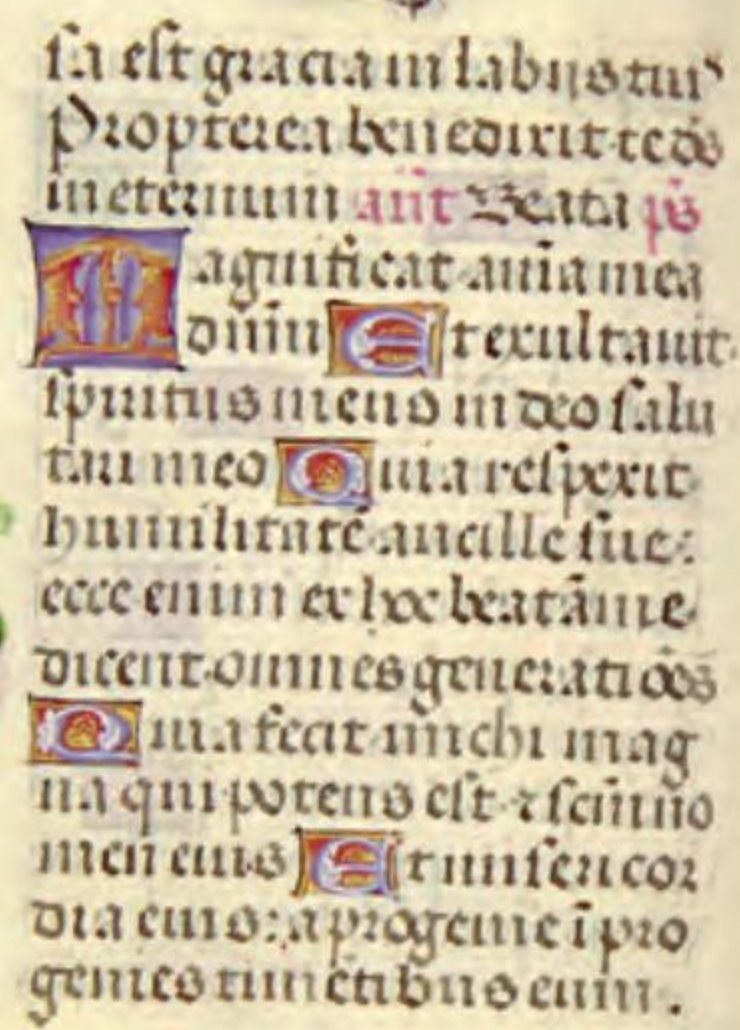 sa est gracia in labijs tuis
Propterea benedixit te ds̄
in eternum ant̄ Beata ps̄
Magnificat anīa mea
dn̄m Et exultauit
spiritus meus in deo salu
tari meo Quia respexit
humilitatē ancille sue:
ecce enim ex hoc beatā me
dicent omnes generatiōēs
Quia fecit michi mag
na qui potens est ⁊ scm̄ no
men eius Et misericor
dia eius: a progenie ī pro
genies timētibus eum.